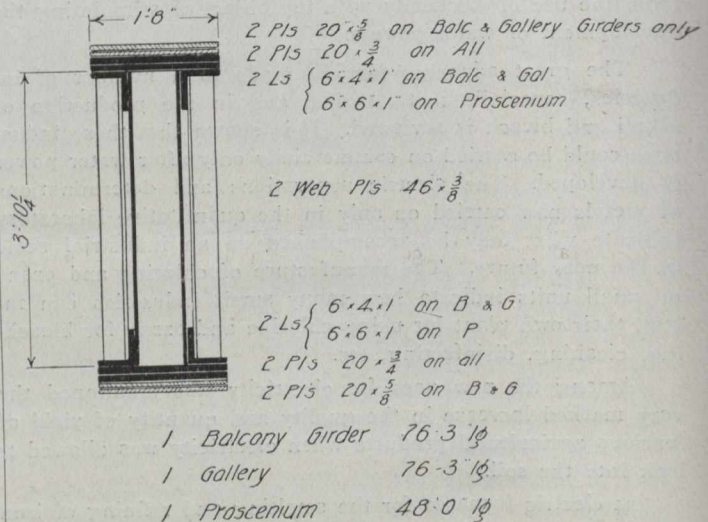 1'-8"
2 Pls 20"×5/8 on Balc & Gallery Girders only
2 Pls 20×3/4 on All
2 Ls { 6"×4"×1" on Balc & Gal
6"×6"×1" on Proscenium
3'-10 1/4"
2 Web Pls 46×3/8
2 Ls { 6×4×1 on B & G
6×6×1" on P
2 Pls 20×3/4 on all
2 Pls 20×5/8 on B & G
1 Balcony Girder 76-3" lg
1 Gallery 76-3" lg
1 Proscenium 48'0 lg